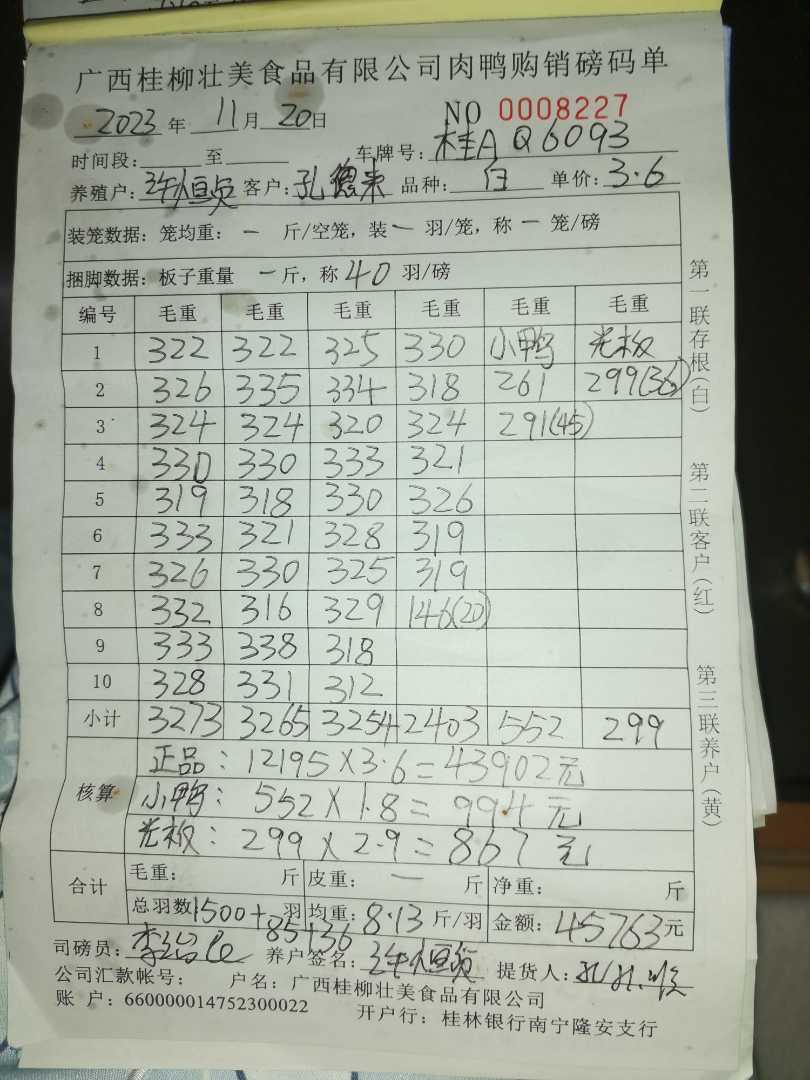 广西桂柳壮美食品有限公司肉鸭购销磅码单
2023年 11月 20日 NO 0008227
时间段: 至 车牌号: 桂A Q6093
养殖户: 许恒贞 客户: 孔德来 品种: 白 单价: 3.6
装笼数据: 笼均重: 一 斤/空笼, 装一 羽/笼, 称 一 笼/磅
捆脚数据: 板子重量 一斤, 称 40 羽/磅
编号 毛重 毛重 毛重 毛重 毛重 毛重
1 322 322 325 330 小鸭 光板
2 326 335 334 318 261 299(36)
3 324 324 320 324 291(45)
4 330 330 333 321
5 319 318 330 326
6 333 321 328 319
7 326 330 325 319
8 332 316 329 146(20)
9 333 338 318
10 328 331 312
小计 3273 3265 3254 2403 552 299
核算
正品: 12195×3.6=43902元
小鸭: 552×1.8=994元
光板: 299×2.9=867元
合计
毛重: 斤 皮重: 一 斤 净重: 斤
总羽数 1500+85+36 羽 均重: 8.13 斤/羽 金额: 45763元
司磅员: 养户签名: 许恒贞 提货人:
公司汇款帐号: 户名: 广西桂柳壮美食品有限公司
账 户: 660000014752300022 开户行: 桂林银行南宁隆安支行
第一联存根(白)
第二联客户(红)
第三联养户(黄)